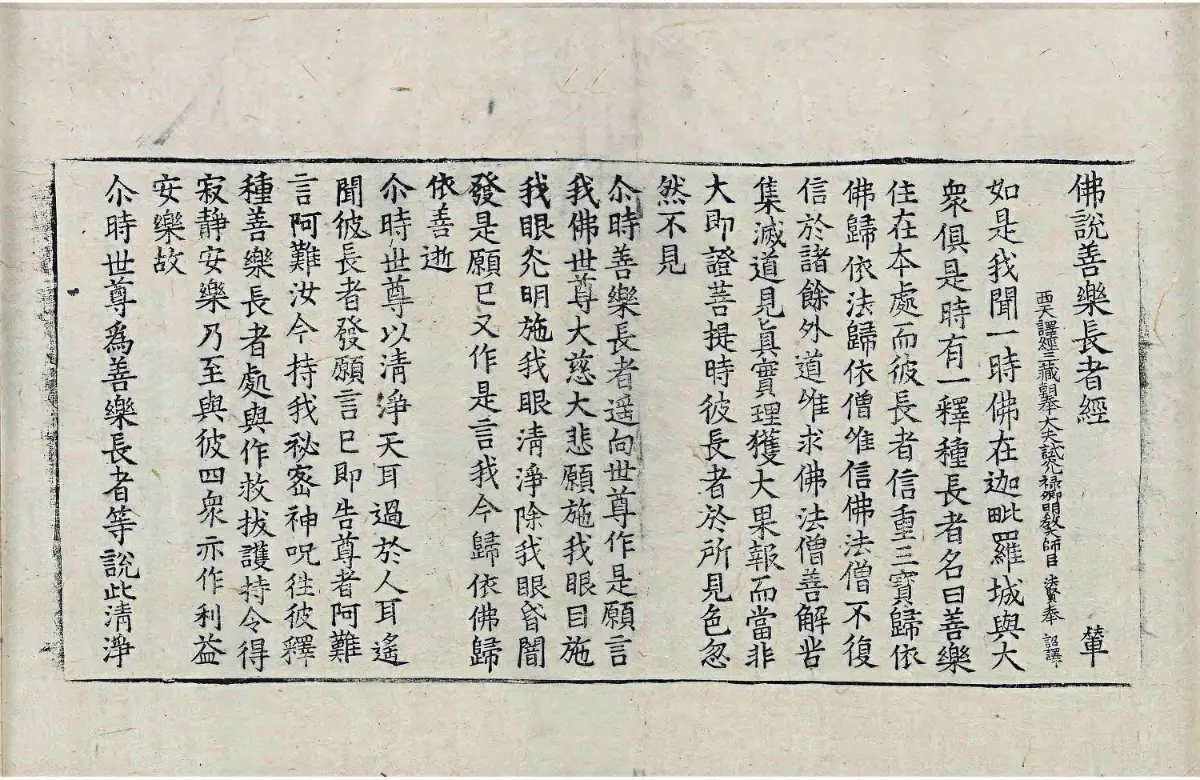 佛說善樂長者經 輦
西天譯經三藏朝奉大夫試光祿卿明教大師臣法賢奉 詔譯
如是我聞一時佛在迦毗羅城與大
衆俱是時有一釋種長者名曰善樂
住在本處而彼長者信重三寶歸依
佛歸依法歸依僧唯信佛法僧不復
信於諸餘外道唯求佛法僧善解苦
集滅道見眞實理獲大果報而當非
大即證菩提時彼長者於所見色忽
然不見
尒時善樂長者遥向世尊作是願言
我佛世尊大慈大悲願施我眼目施
我眼光明施我眼清淨除我眼昏闇
發是願已又作是言我今歸依佛歸
依善逝
尒時世尊以清淨天耳過於人耳遙
聞彼長者發願言已即告尊者阿難
言阿難汝今持我祕密神呪往彼釋
種善樂長者處與作救拔護持令得
寂靜安樂乃至與彼四衆亦作利益
安樂故
尒時世尊爲善樂長者等說此清淨